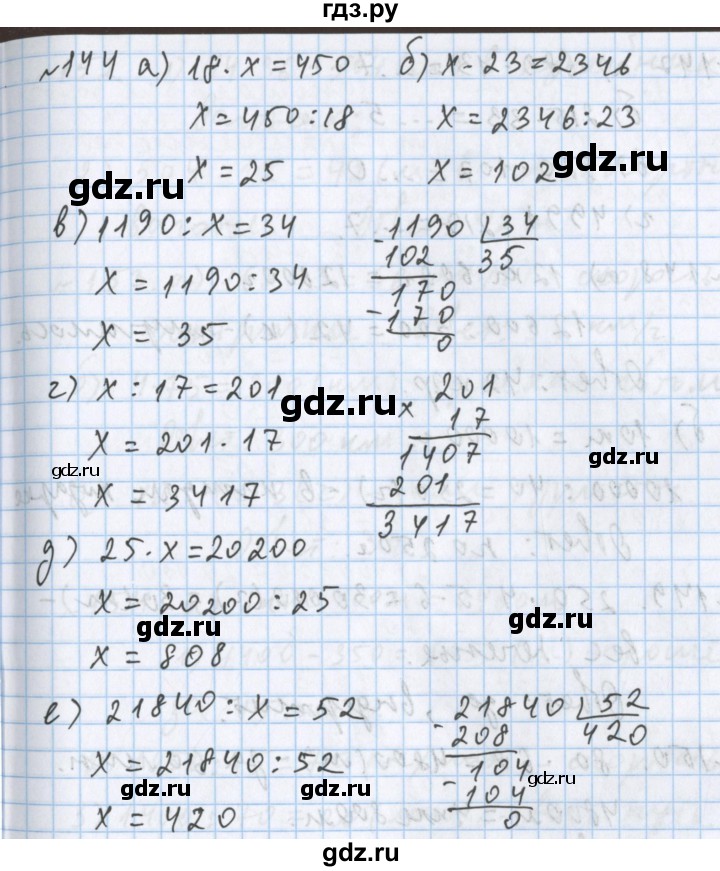 гдз.ру
№144 а) 18·x=450 б) x·23=2346
x=450:18 x=2346:23
x=25 x=102
gdz.ru gdz.ru
в) 1190:x=34 -1190 34
x=1190:34 102 35
170
x=35 -170
0
г) x:17=201 gdz.ru 201
x=201·17 × 17
gdz.ru 1407 gdz.ru
x=3417 201
3417
д) 25·x=20200
x=20200:25
gdz.ru gdz.ru
x=808
е) 21840:x=52 -21840 52
208 420
x=21840:52 104
gdz.ru gdz.ru gdz.ru
x=420 -104
0
gdz.ru